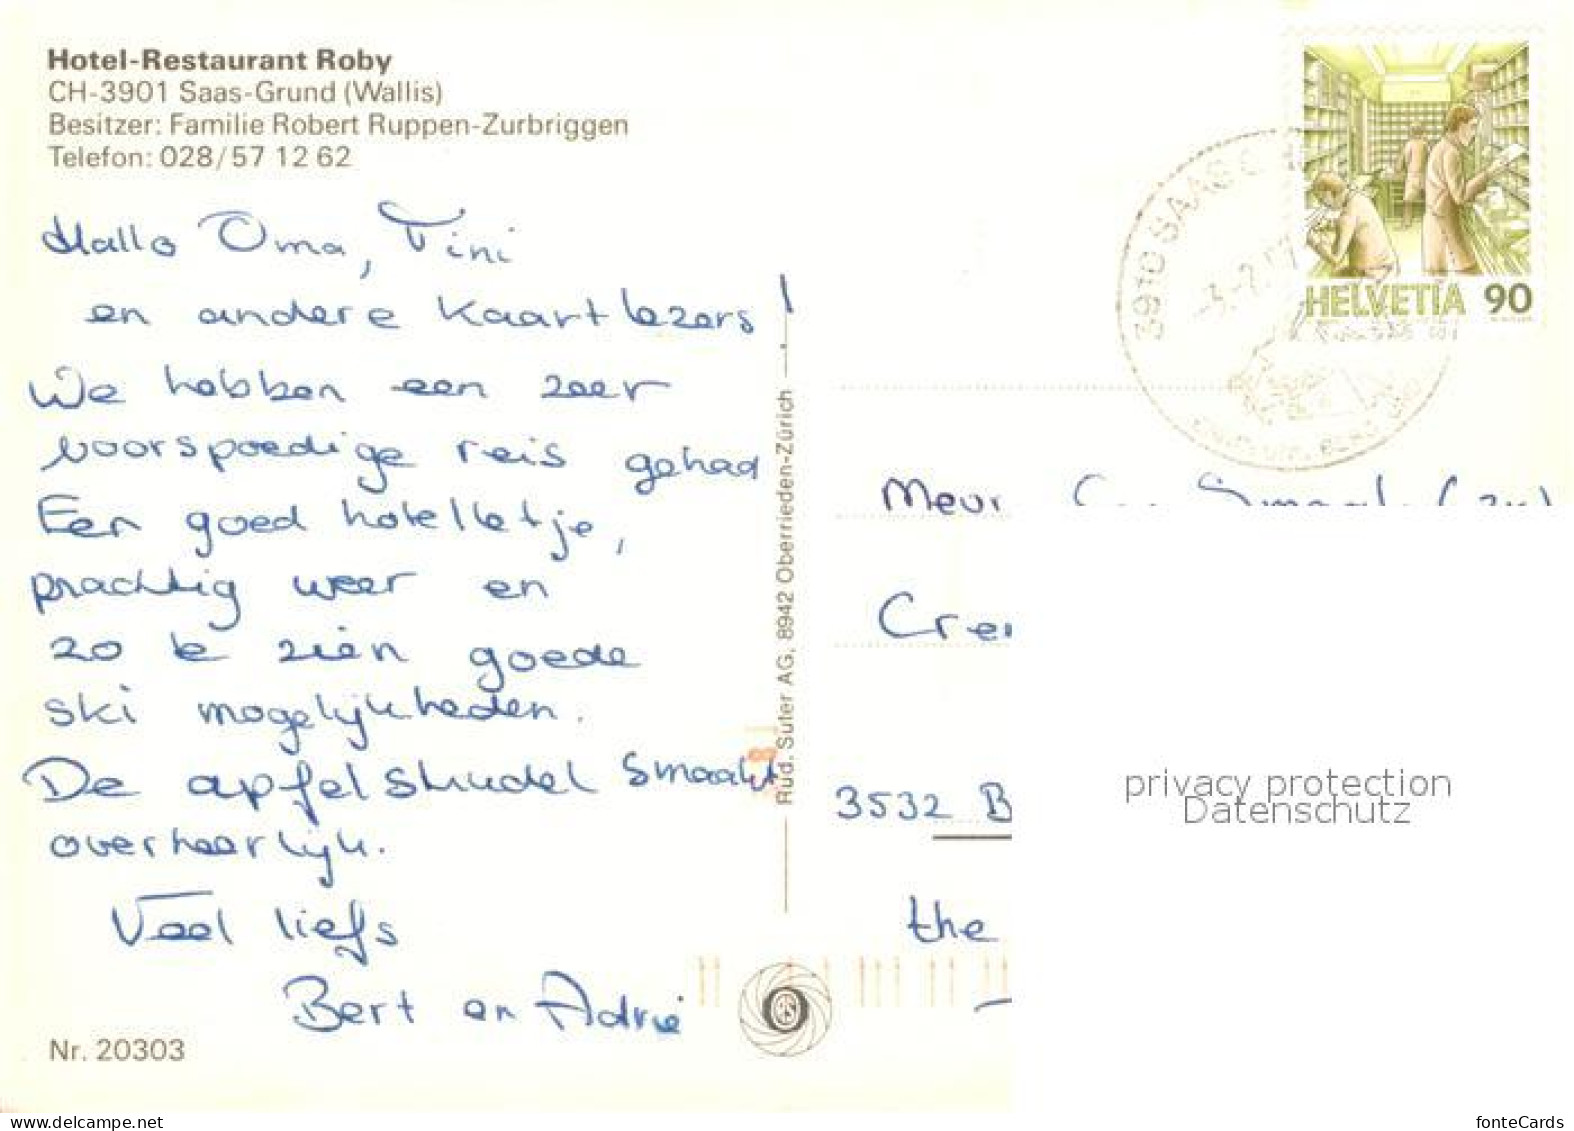 Hotel-Restaurant Roby
CH-3901 Saas-Grund (Wallis)
Besitzer: Familie Robert Ruppen-Zurbriggen
Telefon: 028/57 12 62
Hallo Oma, Tini
en andere kaartlezers!
We hebben een zeer
voorspoedige reis gehad
Een goed hotelletje,
prachtig weer en
zo te zien goede
ski mogelijkheden.
De apfelstrudel smaakt
overheerlijk.
Veel liefs
Bert en Adrie
Nr. 20303
Rud. Suter AG, 8942 Oberrieden-Zürich
HELVETIA 90
3910 SAAS
3532 B
the
privacy protection
Datenschutz
delcampe.net
fonteCards